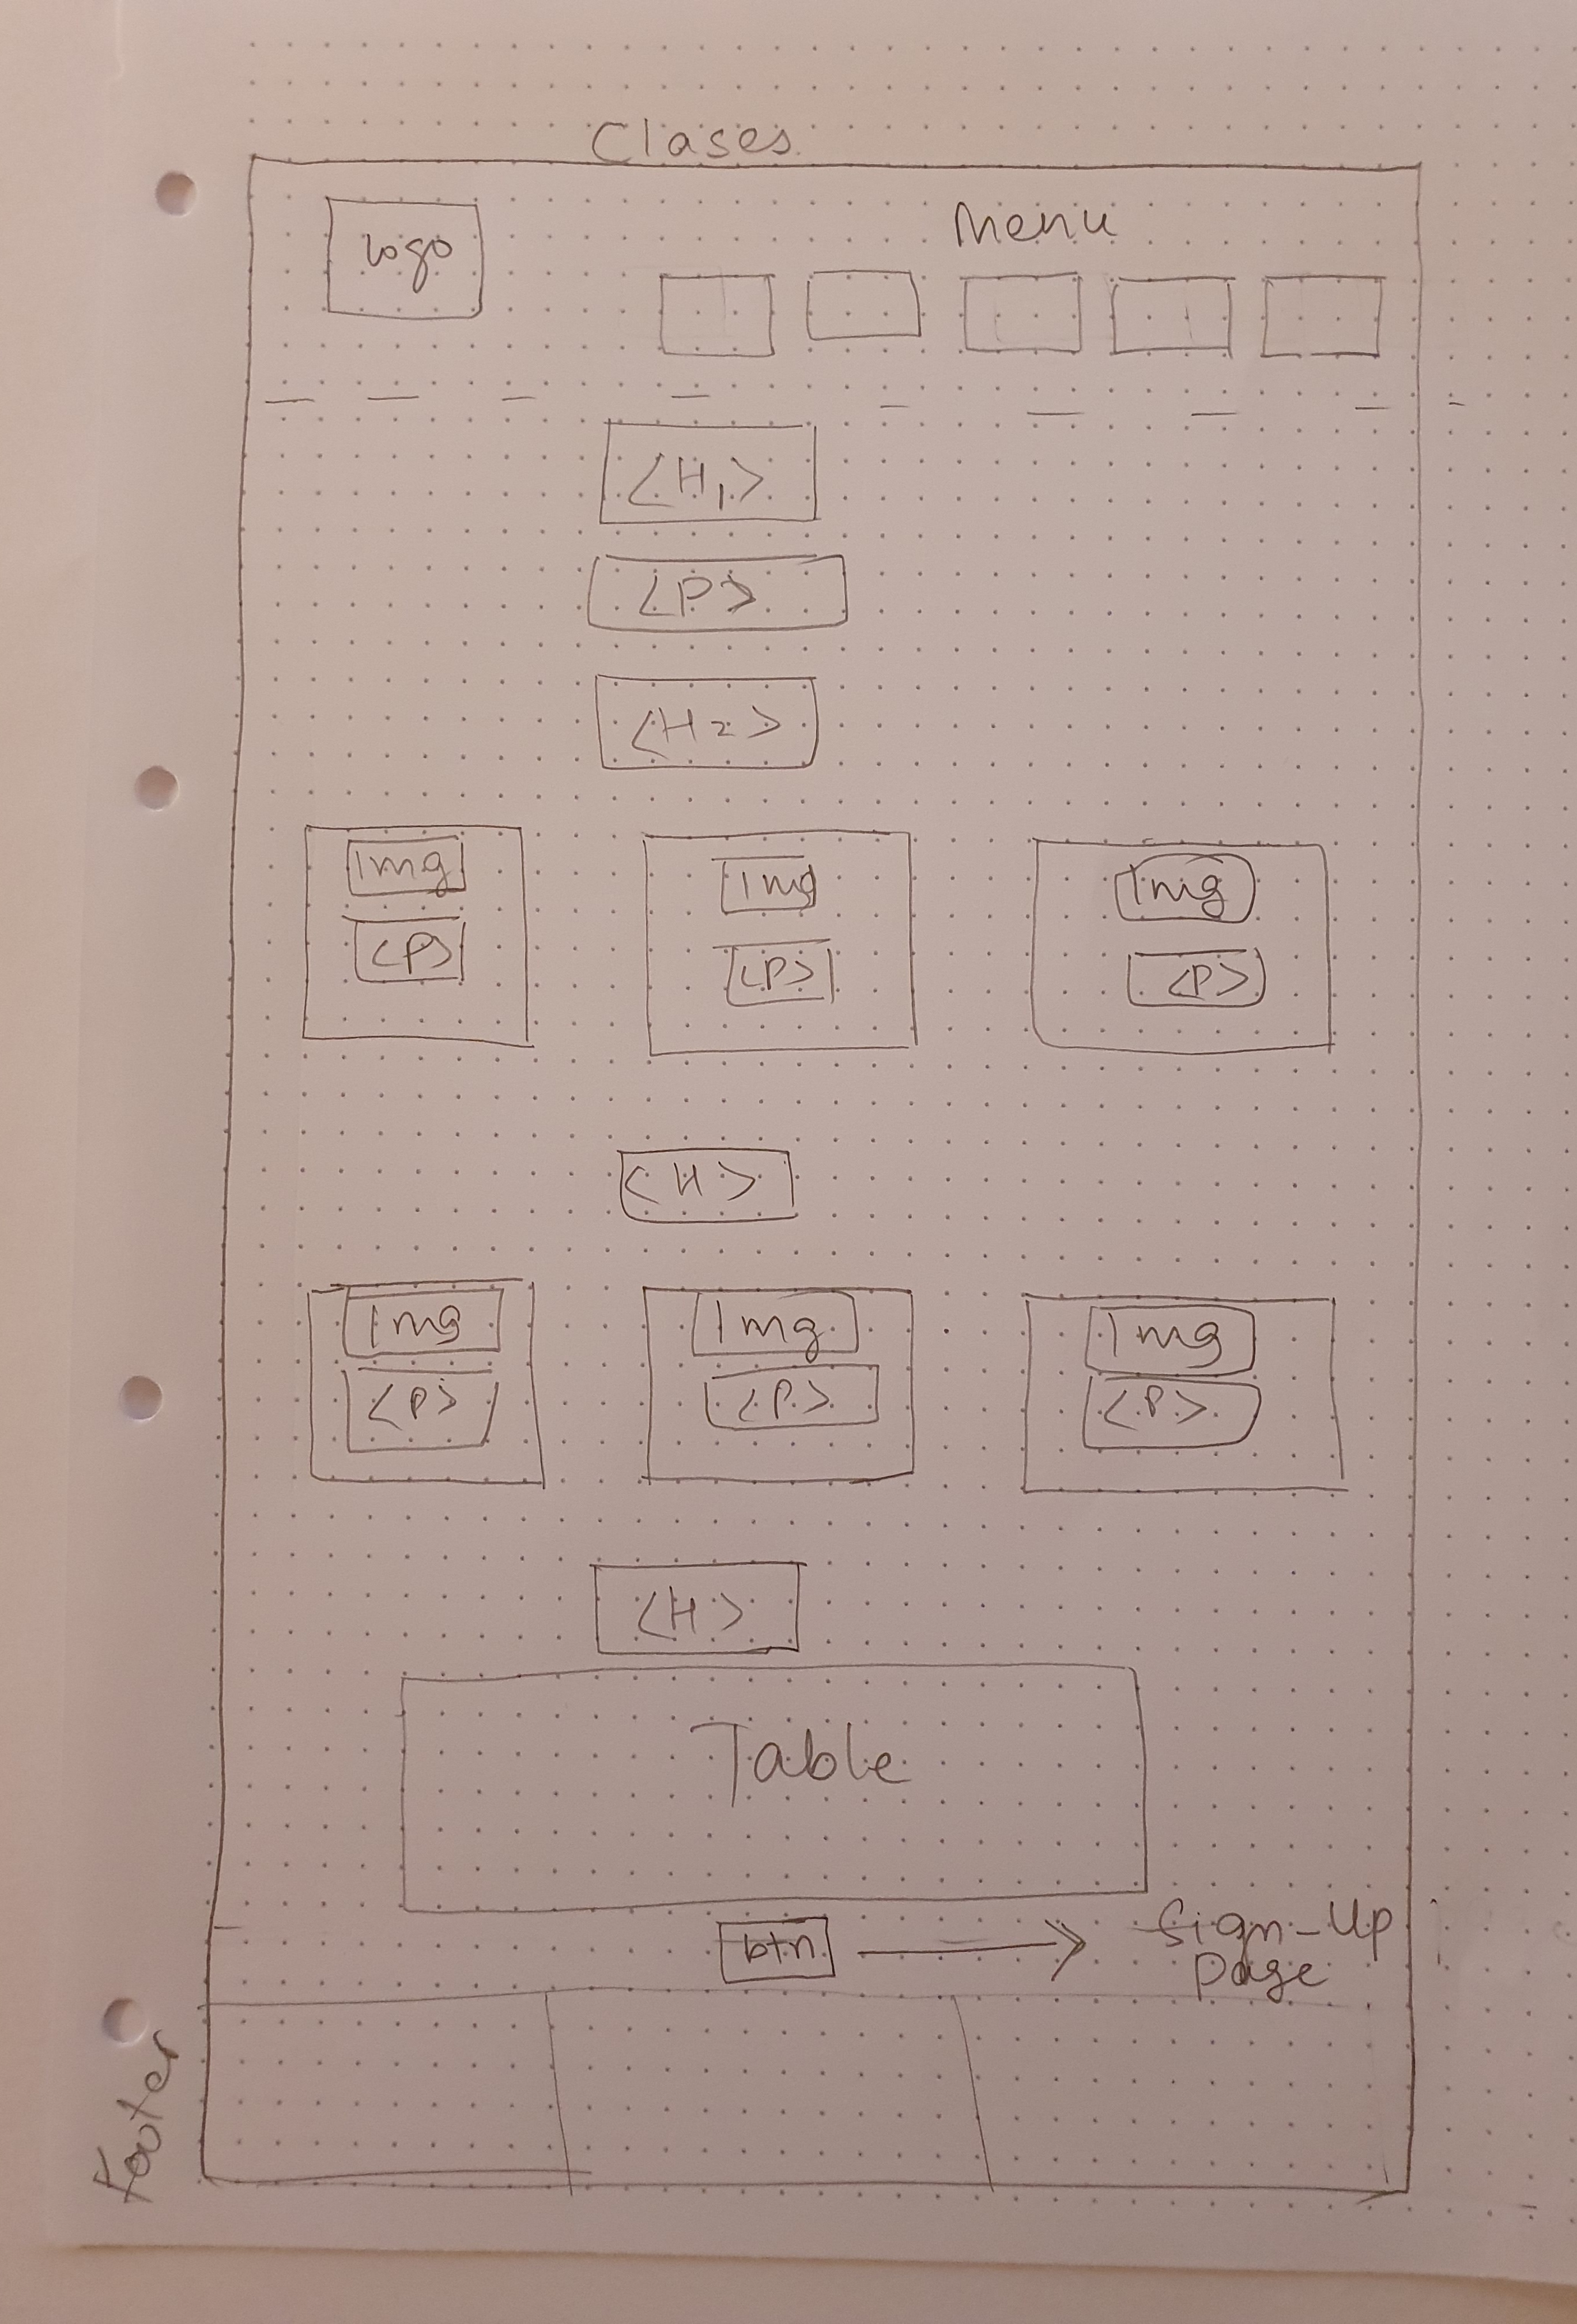 Clases
logo
Menu
<H1>
<P>
<H2>
Img Img Img
<P> <P> <P>
<H>
Img Img Img
<P> <P> <P>
<H>
Table
btn → Sign-Up
page
Footer